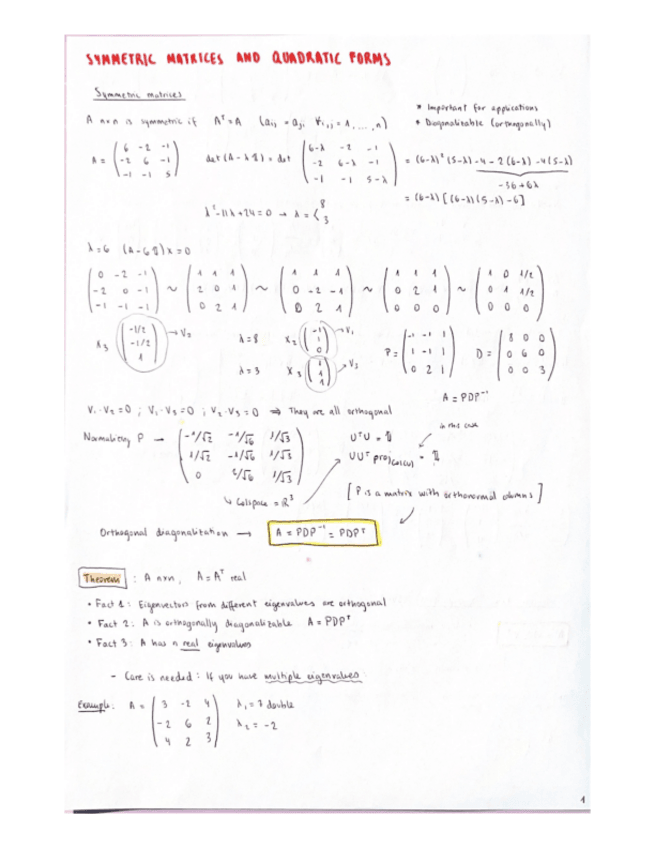 SYMMETRIC MATRICES AND QUADRATIC FORMS
Symmetric matrices
* Important for applications
A n×n is symmetric if Aᵀ=A (aij = aji ∀i,j = 1, ..., n)
* Diagonalizable (orthogonally)
A = (6 -2 -1; -2 6 -1; -1 -1 5) det(A-λ𝟙) = det (6-λ -2 -1; -2 6-λ -1; -1 -1 5-λ) = (6-λ)²(5-λ) -4 -2(6-λ) -4(5-λ)
-36+6λ
= (6-λ)[(6-λ)(5-λ)-6]
λ²-11λ+24=0 → λ = < 8 3
λ=6 (A-6𝟙)x=0
(0 -2 -1; -2 0 -1; -1 -1 -1) ~ (1 1 1; 2 0 1; 0 2 1) ~ (1 1 1; 0 -2 -1; 0 2 1) ~ (1 1 1; 0 2 1; 0 0 0) ~ (1 0 1/2; 0 1 1/2; 0 0 0)
x₃ (-1/2; -1/2; 1) → V₂ λ=8 x₂ (-1; 1; 0) → V₁ P = (-1 -1 1; 1 -1 1; 0 2 1) D = (8 0 0; 0 6 0; 0 0 3)
λ=3 x₃ (1; 1; 1) → V₃
A = PDP⁻¹
V₁·V₂=0 ; V₁·V₃=0 ; V₂·V₃=0 ⇒ They are all orthogonal
in this case
Normalizing P → (-1/√2 -1/√6 1/√3; 1/√2 -1/√6 1/√3; 0 2/√6 1/√3) UᵀU = 𝟙
UUᵀ proj Col(U) = 𝟙
↳ Colspace = ℝ³
[P is a matrix with orthonormal columns]
Orthogonal diagonalitation → A = PDP⁻¹ = PDPᵀ
Theorem : A n×n, A=Aᵀ real
• Fact 1: Eigenvectors from different eigenvalues are orthogonal
• Fact 2: A is orthogonally diagonalizable A = PDPᵀ
• Fact 3: A has n real eigenvalues
- Care is needed: If you have multiple eigenvalues
Example: A = (3 -2 4; -2 6 2; 4 2 3) λ₁ = 7 double
λ₂ = -2
1